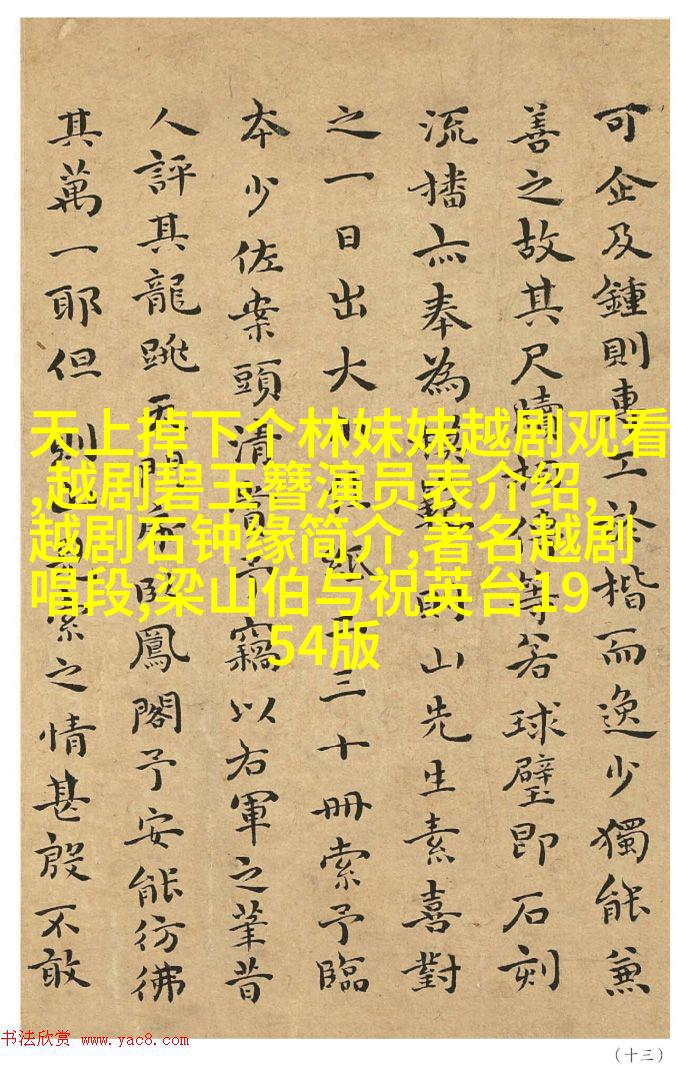 天上掉下个林妹妹越剧观看
,越剧碧玉簪演员表介绍,
越剧石钟缘简介,著名越剧
唱段,梁山伯与祝英台19
54版
可企及鍾則專工於楷而逸少獨能兼
善之故其尺牘傳等若球璧即石刻
流播亦奉為則山先生素喜對
之一日出大三十冊索予臨
本少佐案頭清賞予竊以右軍之筆昔
人評其龍跳天門虎臥鳳閣予安能彷彿
其萬一耶但則索之情甚殷不敢
书法欣赏 www.yac8.com
(十三)